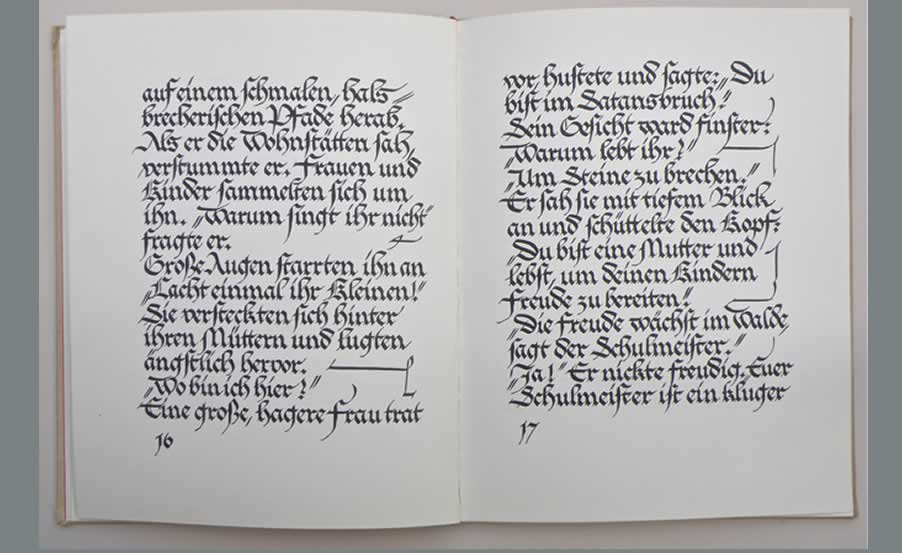 auf einem schmalen, hals=
brecherischen Pfade herab.
Als er die Wohnstätten sah,
verstummte er. Frauen und
Kinder sammelten sich um
ihn. „Warum singt ihr nicht“
fragte er.
Große Augen starrten ihn an
„Lacht einmal ihr Kleinen!“
Sie versteckten sich hinter
ihren Müttern und lugten
ängstlich hervor.
„Wo bin ich hier?“
Eine große, hagere Frau trat
16
vor, hustete und sagte: „Du
bist im Satansbruch.“
Sein Gesicht ward finster:
„Warum lebt ihr?“
„Um Steine zu brechen.“
Er sah sie mit tiefem Blick
an und schüttelte den Kopf:
„Du bist eine Mutter und
lebst, um deinen Kindern
Freude zu bereiten!“
„Die Freude wächst im Walde,
sagt der Schulmeister.“
„Ja!“ Er nickte freudig. Euer
Schulmeister ist ein kluger
17